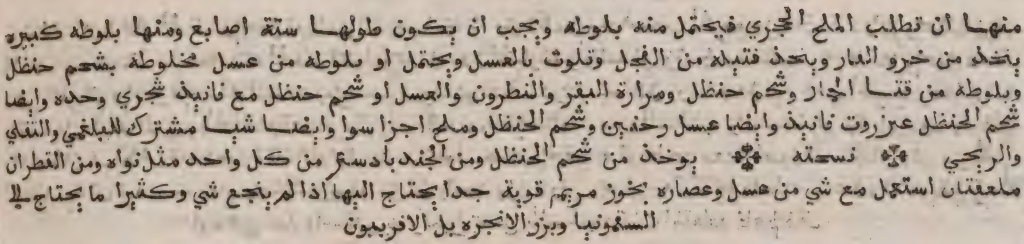 منها ان تطلب الملح الحجري فيحتمل منه بلوطه ويجب ان يكون طولها ستة اصابع ومنها بلوطه كبيره
يتخذ من خرو الفار ويتخذ فتيله من الفجل وتلوث بالعسل ويحتمل او بلوطه من عسل مخلوطه بشحم حنظل
وبلوطه من قثا الحمار وشحم حنظل ومرارة البقر والنطرون والعسل او شحم حنظل مع فانيذ شجري وحده وايضا
شحم الحنظل عنزروت فانيذ وايضا عسل رحفين وشحم الحنظل وملح اجزا سوا وايضا شيا مشترك للبلغمي والثفلي
والريحي ❊ نسخته ❊ يوخذ من شحم الحنظل ومن الجندبادستر من كل واحد مثل نواه ومن القطران
ملعقتان استعمل مع شي من عسل وعصاره بخور مريم قوية جدا يحتاج اليها اذا لم ينجع شي وكثيرا ما يحتاج الي
السقمونيا وبزر الانجره بل الافربيون